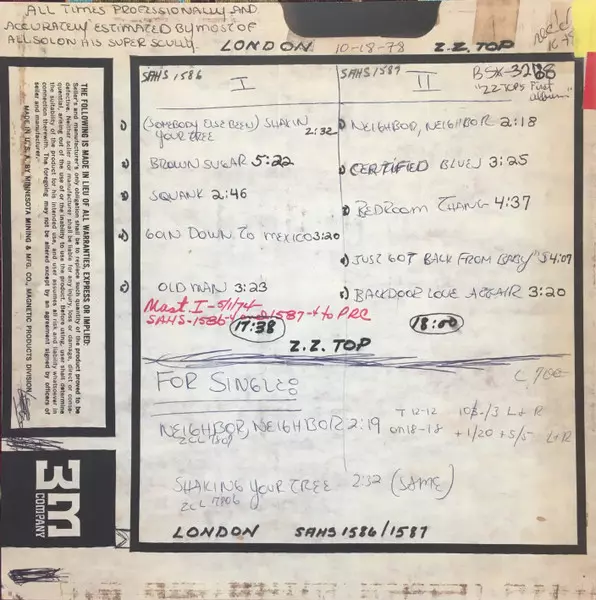 ALL TIMES PROFESSIONALLY AND
ACCURATELY ESTIMATED BY MOST OF
ALL SOLON HIS SUPER SCULLY.
LONDON 10-18-78 Z.Z. TOP
SAHS 1586 I
SAHS 1587 II BSK-3268
"ZZ TOP'S First
album"
1) (SOMEBODY ELSE BEEN) SHAKIN
YOUR TREE 2:32
2) BROWN SUGAR 5:22
3) SQUANK 2:46
4) GOIN DOWN TO MEXICO 3:20
5) OLD MAN 3:23
1) NEIGHBOR, NEIGHBOR 2:18
2) CERTIFIED BLUES 3:25
3) BEDROOM THANG 4:37
4) JUST GOT BACK FROM BABY'S 4:07
5) BACKDOOR LOVE AFFAIR 3:20
Mast. I - 5/1/74
SAHS-1586 and 1587 to PRC
17:38
18:00
Z.Z. TOP
FOR SINGLE:
NEIGHBOR, NEIGHBOR 2:19
T 12-12
on 18-18
+1/20 +5/5 L+R
SHAKING YOUR TREE 2:32 (SAME)
LONDON SAHS 1586/1587
THE FOLLOWING IS MADE IN LIEU OF ALL WARRANTIES, EXPRESS OR IMPLIED:
Seller's and manufacturer's only obligation shall be to replace such quantity of the product proved to be
defective. Neither seller nor manufacturer shall be liable for any injury, loss or damage, direct or conse-
quential, arising out of the use of or the inability to use the product. Before using, user shall determine
the suitability of the product for his intended use, and user assumes all risk and liability whatsoever in
connection therewith. The foregoing may not be altered except by an agreement signed by officers of
seller and manufacturer.
MADE IN U. S. A. BY MINNESOTA MINING & MFG. CO., MAGNETIC PRODUCTS DIVISION
3M
COMPANY